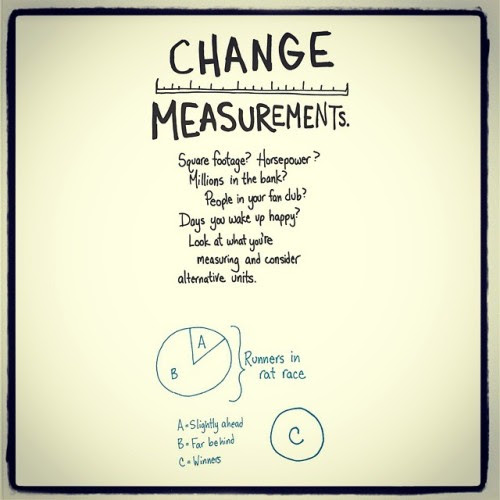 CHANGE
MEASUREMENTS.
Square footage? Horsepower?
Millions in the bank?
People in your fan club?
Days you wake up happy?
Look at what you're
measuring and consider
alternative units.
A
B
Runners in
rat race
A=Slightly ahead
B=Far behind
C=Winners
C